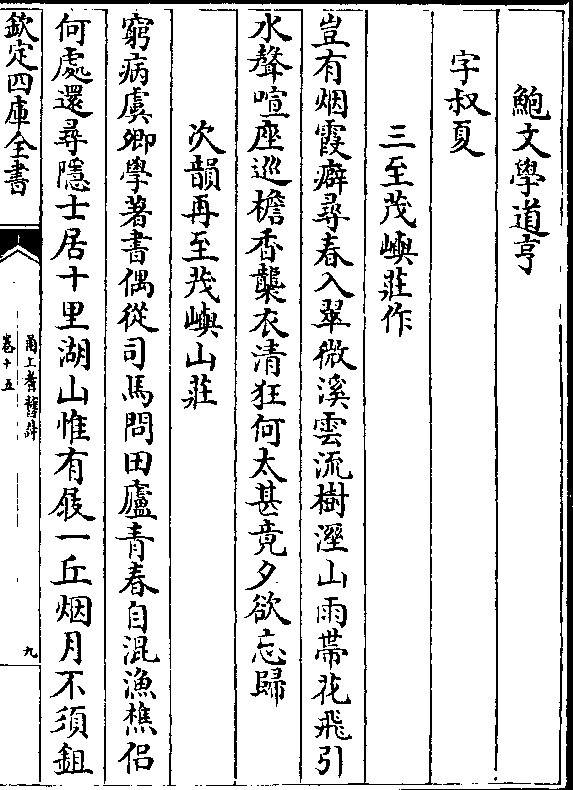 鮑文學道亨
字叔夏
三至茂嶼莊作
豈有烟霞癖尋春入翠微溪雲流樹溼山雨帶花飛引
水聲喧座巡檐香襲衣清狂何太甚竟夕欲忘歸
次韻再至茂嶼山莊
窮病虞卿學著書偶從司馬問田廬青春自混漁樵侣
何處還尋隱士居十里湖山惟有屐一丘烟月不須鉏
欽定四庫全書
甬上耆舊詩
卷十五
九